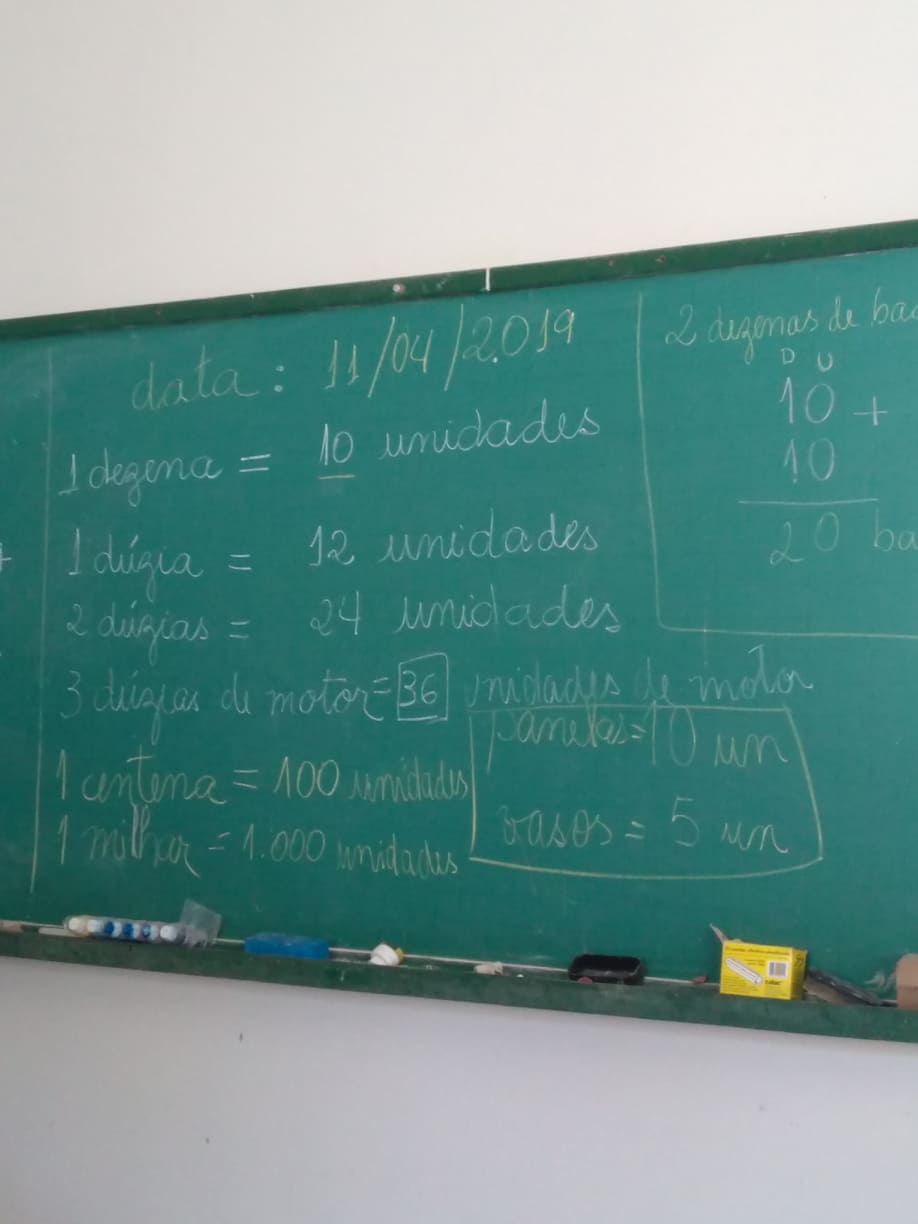 data: 11/04/2.019
1 dezena = 10 unidades
1 dúzia = 12 unidades
2 dúzias = 24 unidades
3 dúzias de motor = 36 unidades de motor
1 centena = 100 unidades
1 milhar = 1.000 unidades
panelas = 10 un
vasos = 5 un
2 dezenas de ba
D U
10 +
10
20 ba